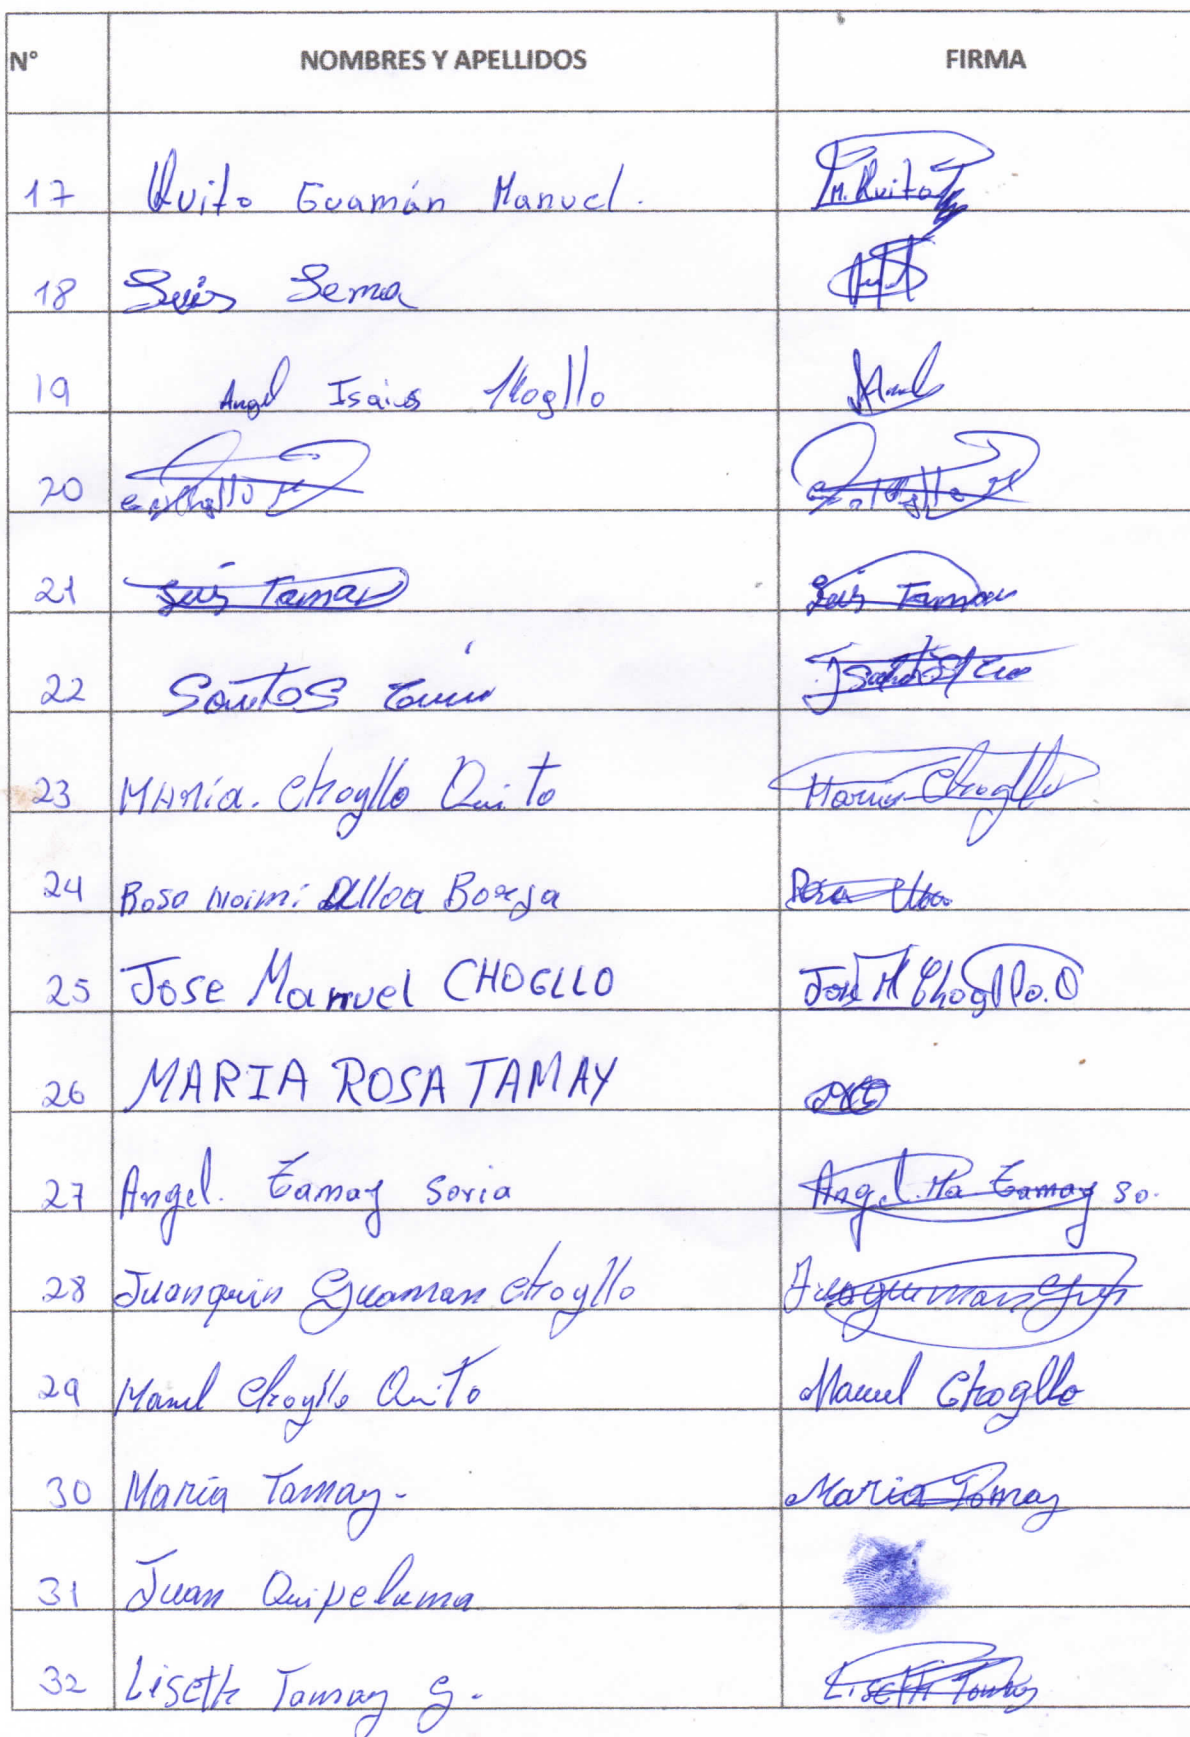 N° NOMBRES Y APELLIDOS FIRMA
17 Quito Guamán Manuel. M. Quito
18 Luis
19 Angel Isaias Chogllo
20
21 Luis Tamay Luis Tamay
22 Santos
23 María. Chogllo Quito Maria Chogllo
24 Rosa Noimi Ulloa Borja Rosa Ulloa
25 Jose Manuel CHOGLLO José M Chogllo. Q
26 MARIA ROSA TAMAY
27 Angel. Tamay Soria Angel. Ma Tamay So.
28 Juanquin Guaman Chogllo
29 Manuel Chogllo Quito Manuel Chogllo
30 María Tamay. Maria Tamay
31 Juan Quipeluma
32 Liseth Tamay G. Liseth Tamay